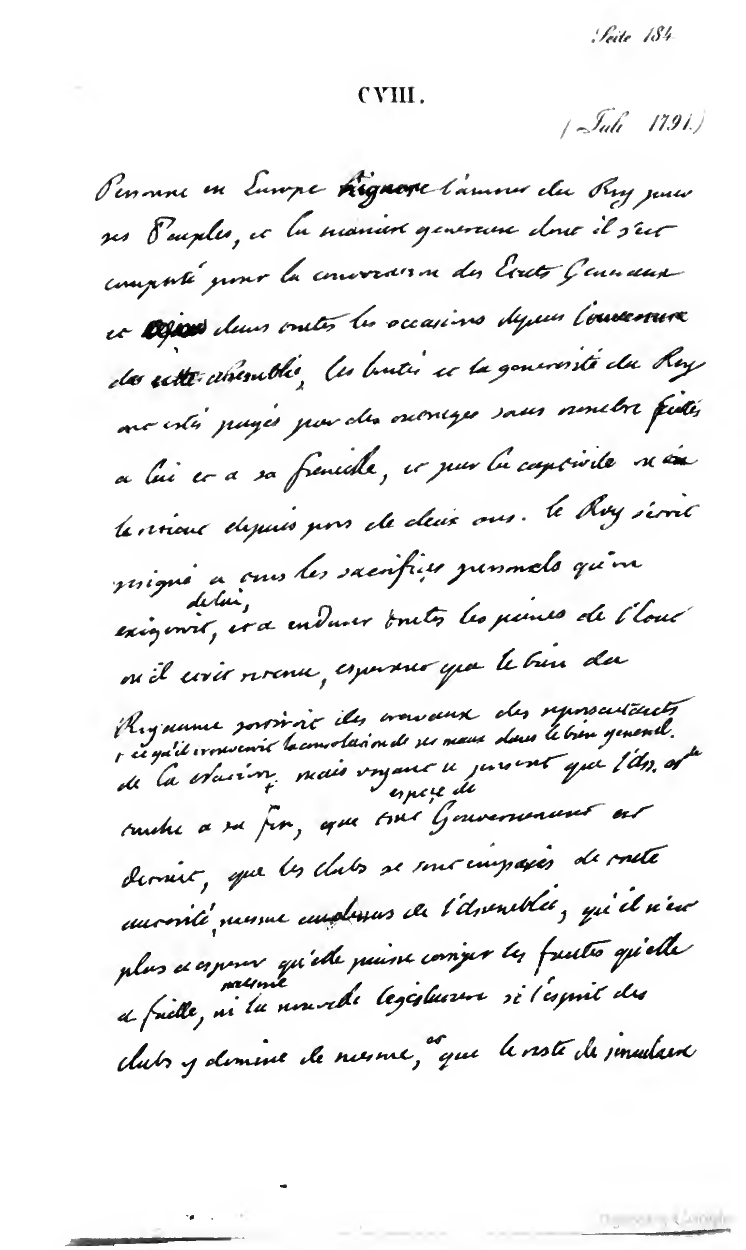 Seite 184
CVIII.
(Juli 1791.)
Personne en Europe n'ignore l'amour du Roy pour
ses Peuples, et la maniere genereuse dont il s'est
comporté pour la convocation des Etats Generaux
et dans toutes les occasions depuis l'ouverture
de cette assemblée, les bontés et la generosité du Roy
ont estés payés par des outrages sans nombre faites
a lui et a sa famille, et par la captivite ou on
le retient depuis pres de deux ans. le Roy s'étoit
resigné a tous les sacrifices personels qu'on
de lui,
exigeroit, et a endurer toutes les peines de l'état
ou il etoit retenu, esperant que le bien du
Royaume sortiroit des travaux des representants
+ et qu'il trouveroit la consolation de ses maux dans le bien general.
de la Nation + mais voyant a present que l'Ass. N.le
espece de
touche a sa fin, que tout Gouvernement est
detruit, que les clubs se sont emparés de toute
autorité, mesme au dessus de l'Assemblée, qu'il n'est
plus a esperer qu'elle puisse corriger les fautes qu'elle
mesme
a faitte, ni la nouvelle legislature si l'esprit des
clubs y domine de mesme, et que le reste de